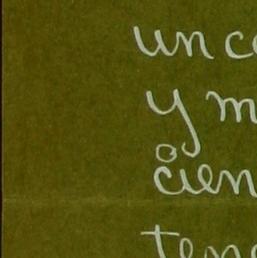 un co
y m
cien
ten